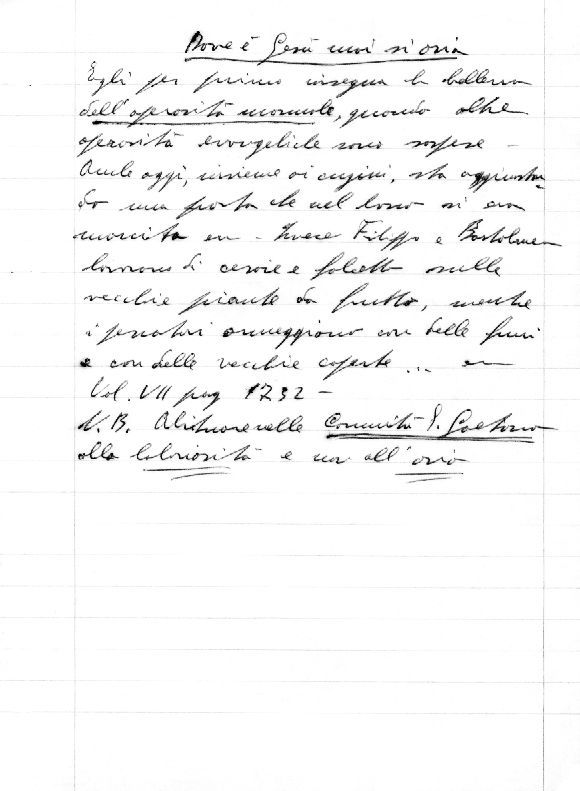 Dove è Gesù mai si ozia
Egli per primo insegna la bellezza
dell'operosità manuale, quando altre
operosità evangeliche sono sospese -
Anche oggi, insieme ai cugini, sta aggiustan-
do una porta che nel basso si era
marcita - Invece Filippo e Bartolmeo
lavorano di cesoie e falcetto sulle
vecchie piante da frutto, mentre
i pescatori armeggiano con delle funi
e con delle vecchie coperte ...
Vol. VII pag 1732 -
N.B. Abituare nelle Comunità S. Gaetano
alla laboriosità e non all'ozio